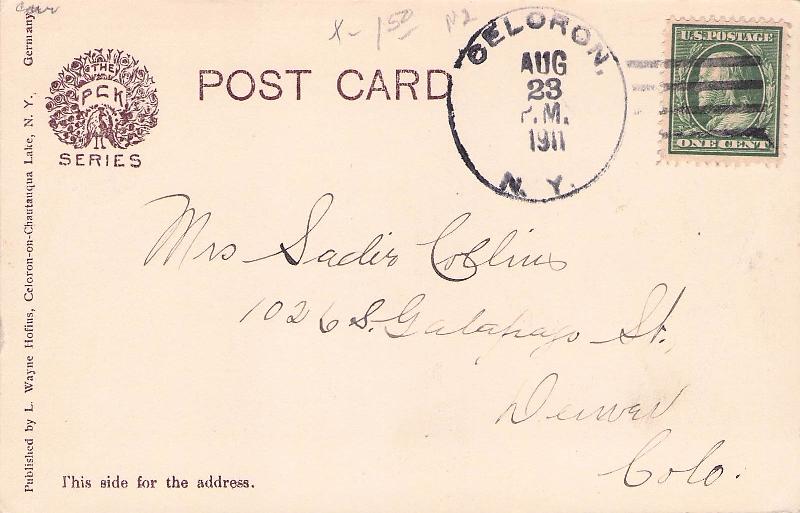 X- 1 50 N2
THE
PCK
SERIES
POST CARD
CELORON.
AUG
23
P.M.
1911
N. Y.
U.S. POSTAGE
ONE CENT
Mrs Sadie Collins
1026 S. Galapago St.
Denver
Colo.
This side for the address.
Published by L. Wayne Hofius, Celoron-on-Chautauqua Lake, N. Y. Germany